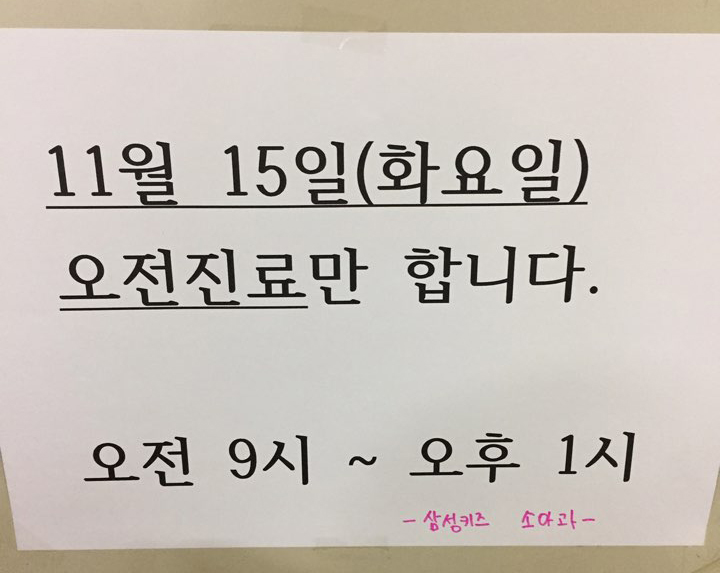 11월 15일(화요일)
오전진료만 합니다.
오전 9시 ~ 오후 1시
- 삼성키즈 소아과 -